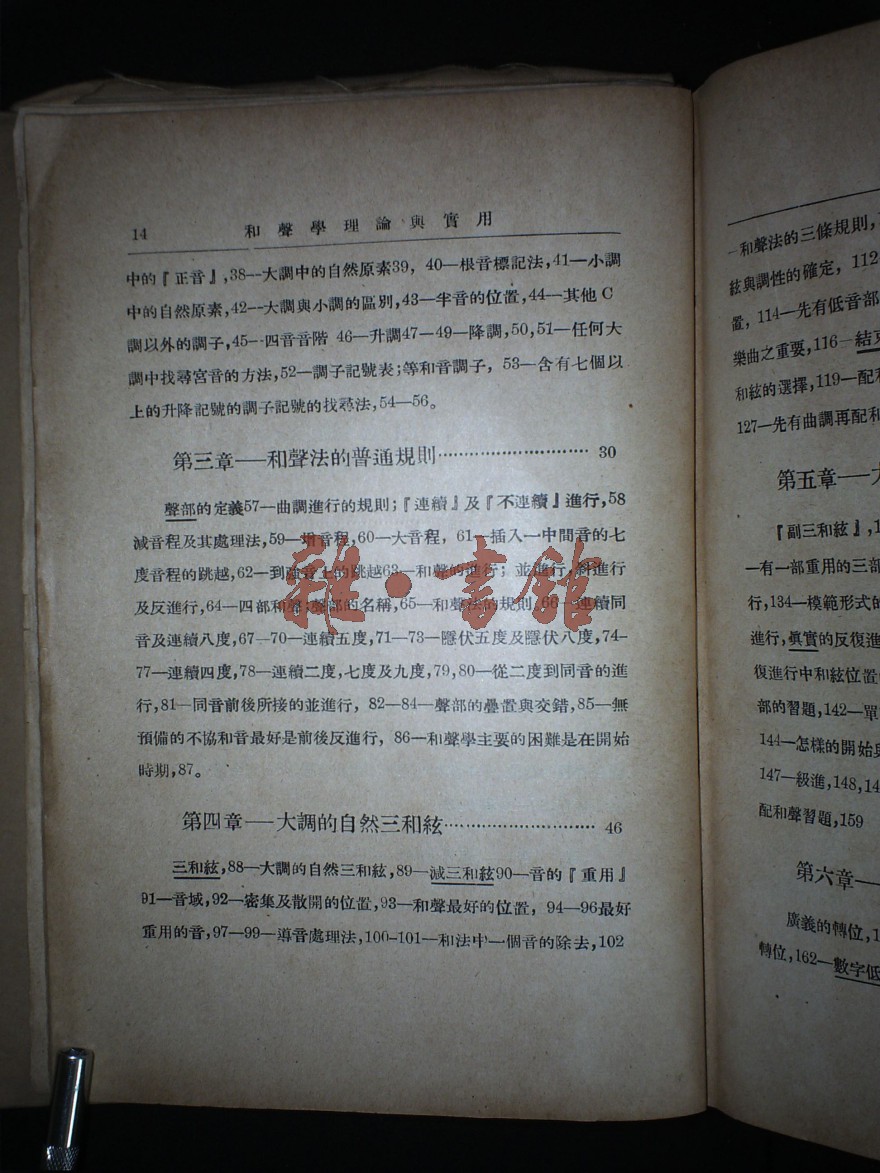 14 和聲學理論與實用
中的『正音』,38—大調中的自然原素39, 40—根音標記法,41—小調
中的自然原素,42—大調與小調的區別,43—半音的位置,44—其他C
調以外的調子,45—四音音階 46—升調47—49—降調,50,51—任何大
調中找尋宮音的方法,52—調子記號表;等和音調子, 53—含有七個以
上的升降記號的調子記號的找尋法,54—56。
第三章——和聲法的普通規則………………………… 30
聲部的定義57—曲調進行的規則;『連續』及『不連續』進行,58
減音程及其處理法,59—增音程,60—大音程, 61—插入一中間音的七
度音程的跳越,62—到強音上的跳越63—和聲的進行; 並進行,斜進行
及反進行,64—四部和聲;聲部的名稱,65—和聲法的規則,66—連續同
音及連續八度,67—70—連續五度,71—73—隱伏五度及隱伏八度,74-
77—連續四度,78—連續二度,七度及九度,79,80—從二度到同音的進
行,81—同音前後所接的並進行, 82—84—聲部的疊置與交錯,85—無
預備的不協和音最好是前後反進行, 86—和聲學主要的困難是在開始
時期,87。
第四章——大調的自然三和絃………………………… 46
三和絃,88—大調的自然三和絃,89—減三和絃90—音的『重用』
91—音域,92—密集及散開的位置,93—和聲最好的位置, 94—96最好
重用的音,97—99—導音處理法,100-101—和法中一個音的除去,102
雅·書館
—和聲法的三條規則,
絃與調性的確定, 112
置, 114—先有低音部
樂曲之重要,116—結束
和絃的選擇,119—配和
127—先有曲調再配和
第五章——大
『副三和絃』,1
—有一部重用的三部
行,134—模範形式的
進行,眞實的反復進
復進行中和絃位置
部的習題,142—單
144—怎樣的開始與
147—級進,148,14
配和聲習題,159
第六章—
廣義的轉位,1
轉位,162—數字低